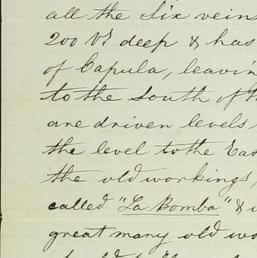 all the Six veins
200 Vs deep & has
of Capula, leavin
to the South of th
are driven levels
the level to the Eas
the old workings,
called "La Bomba" &
great many old wo